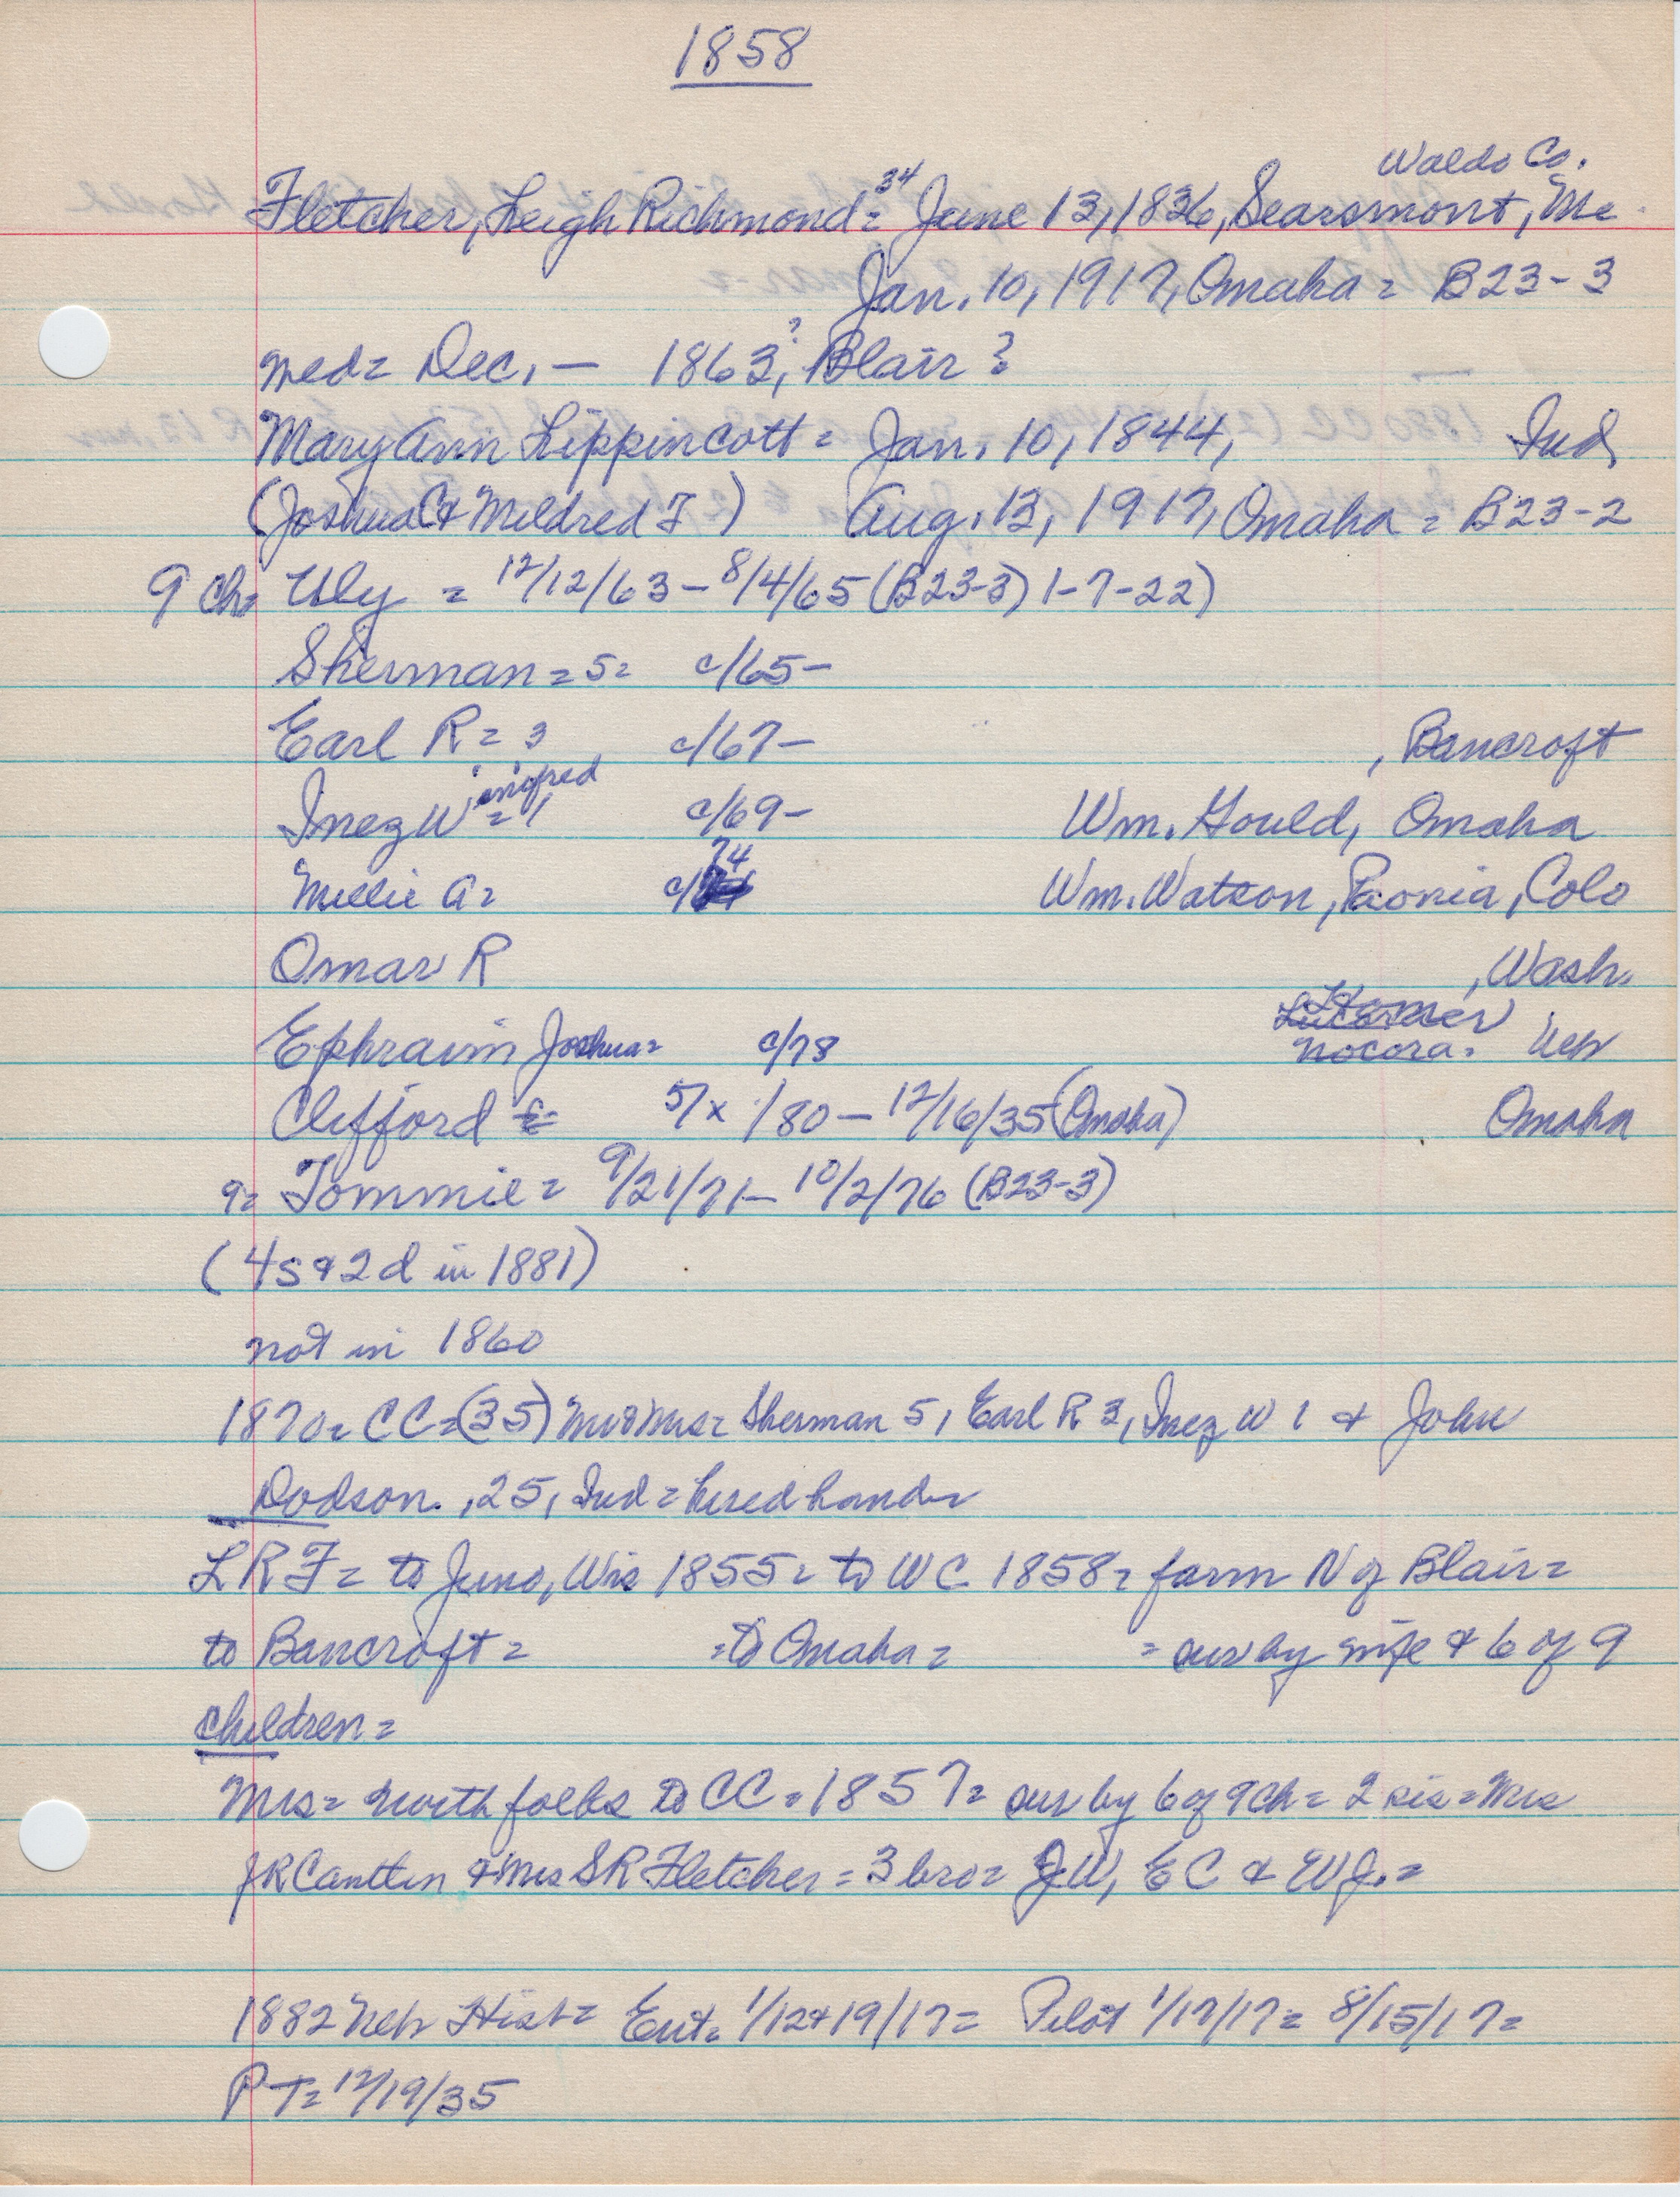 1858
Waldo Co.
34
Fletcher, Leigh Richmond = June 13, 1836, Searsmont, Me.
Jan. 10, 1917, Omaha = B23-3
med = Dec, — 1863?, Blair?
Mary Ann Lippincott = Jan. 10, 1844, Ind
(Joshua C & Mildred F) Aug. 13, 1917, Omaha = B23-2
9 Ch = Uly = 12/12/63 - 8/4/65 (B23-3) 1-7-22)
Sherman = 5 = c/65 -
Earl R = 3 c/67 - , Bancroft
Inez Winifred = 1 c/69 - Wm. Gould, Omaha
Millie A = c/74 Wm. Watson, Paonia, Colo
Omar R , Wash.
Homer
Ephraim Joshua = c/78 Nocora. Neb
Clifford E = 5/x /80 - 12/16/35 (Omaha) Omaha
9 = Tommie = 9/21/71 - 10/2/76 (B23-3)
(4s & 2d in 1881)
not in 1860
1870 = CC = (35) Mr & Mrs = Sherman 5, Earl R 3, Inez W 1 & John
Dodson, 25, Ind = hired hand =
L R F = to Juno, Wis 1855 = to WC 1858 = farm N of Blair =
to Bancroft = = to Omaha = = sur by wife & 6 of 9
children =
Mrs = with folks to CC = 1857 = sur by 6 of 9 ch = 2 sis = Mrs
J R Cantlin & Mrs S R Fletcher = 3 bro = J W, E C & W J. =
1882 Neb Hist = Ent = 1/12 & 19/17 = Pilot 1/17/17 = 8/15/17 =
P T = 12/19/35